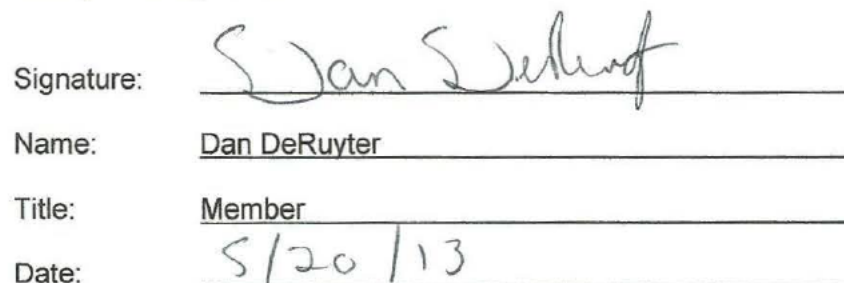 Signature: Dan DeRuyter
Name: Dan DeRuyter
Title: Member
Date: 5/20/13